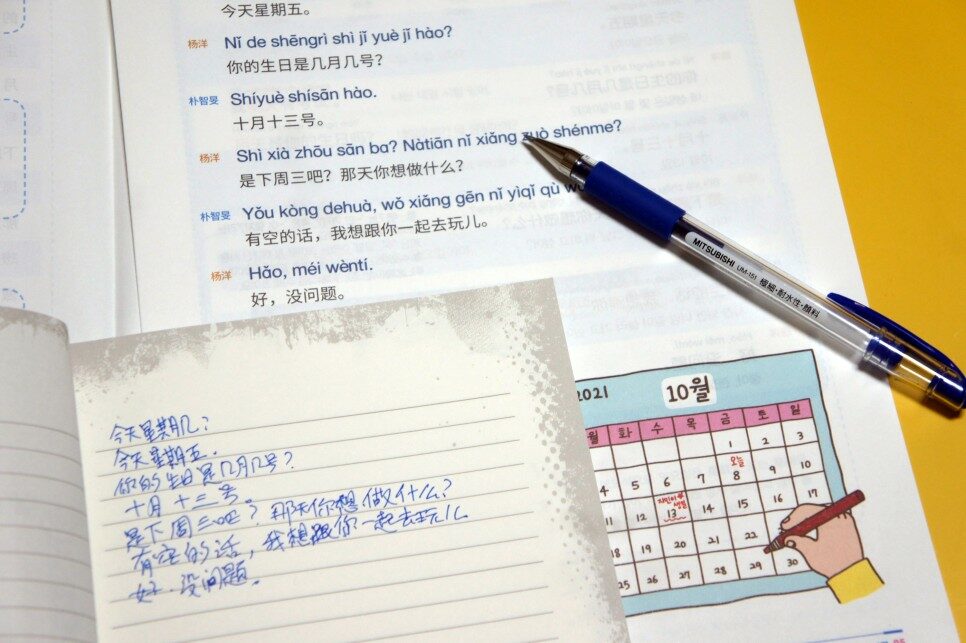 今天星期五。
杨洋 Nǐ de shēngrì shì jǐ yuè jǐ hào?
你的生日是几月几号？
朴智旻 Shíyuè shísān hào.
十月十三号。
杨洋 Shì xià zhōu sān ba? Nàtiān nǐ xiǎng zuò shénme?
是下周三吧？那天你想做什么？
朴智旻 Yǒu kòng dehuà, wǒ xiǎng gēn nǐ yìqǐ qù
有空的话，我想跟你一起去玩儿。
杨洋 Hǎo, méi wèntí.
好，没问题。
MITSUBISHI UM-151 極細・耐水性・顔料
今天星期几?
今天星期五.
你的生日是几月几号?
十月十二号。
是下周三吧? 那天你想做什么?
有空的话，我想跟你一起去玩儿
好.没问题。
2021 10월
월 화 수 목 금 토 일
1 2 3
오늘
4 5 6 7 8 9 10
생일
11 13 14 15 16 17
18 19 20 21 22
25 26 27 28 29 30